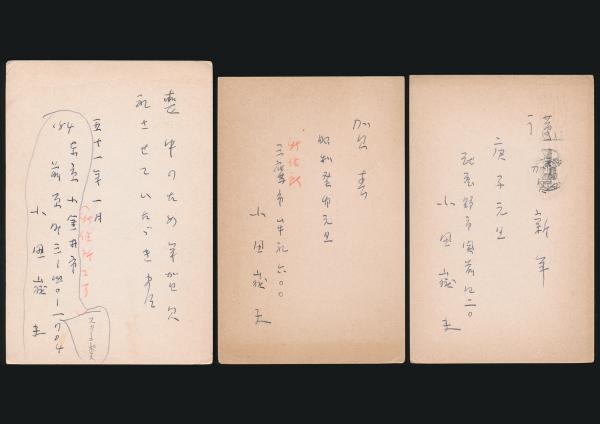 喪中のため年賀欠
礼させていただき申候
五十一年一月
184 東京小金井市
前原町三ー四〇ー一ノ〇四
小田嶽夫
(新住所です)
賀春
昭和癸卯元旦
新住所
三鷹市牟礼六〇〇
小田嶽夫
謹賀新年
庚子元旦
武蔵野市関前九二〇
小田嶽夫